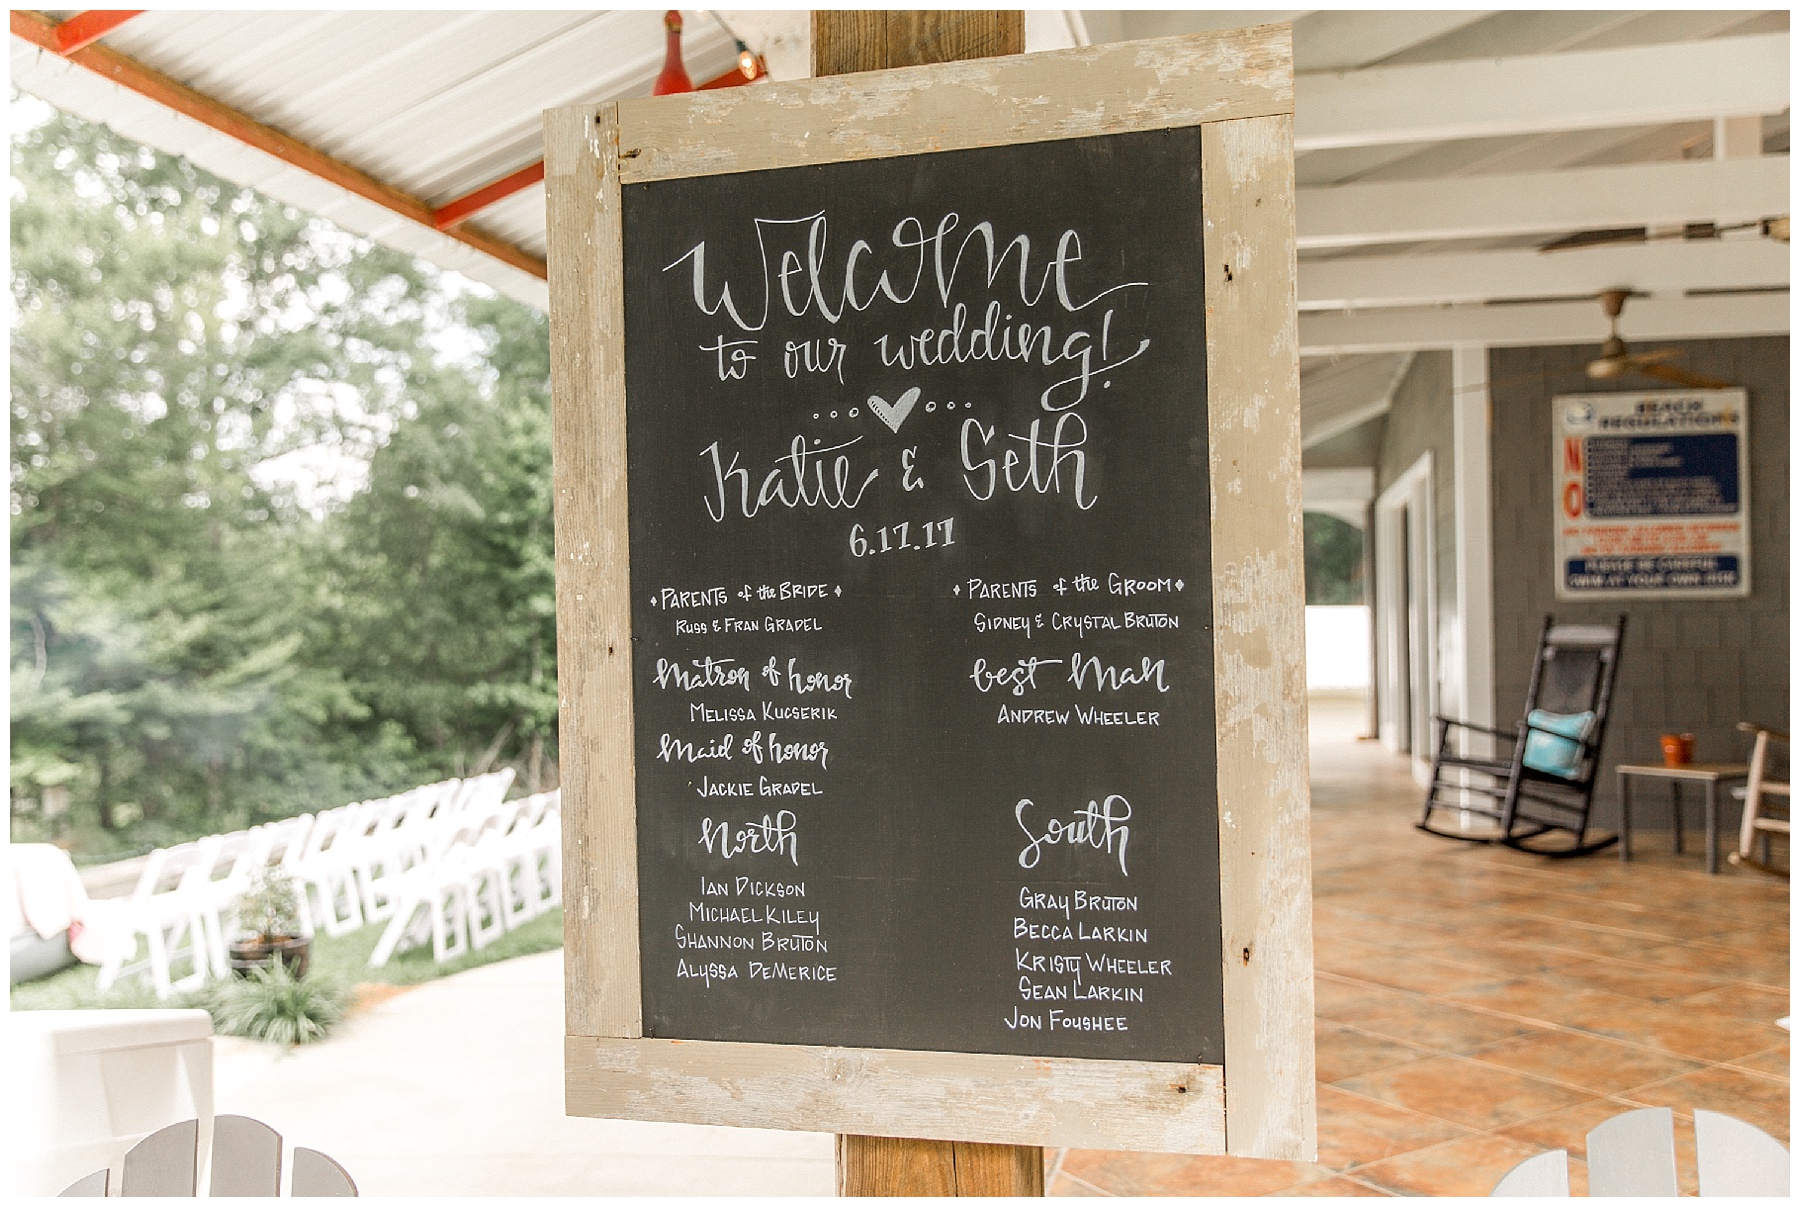 Welcome
to our wedding!
Katie & Seth
6.17.17
PARENTS of the BRIDE
RUSS & FRAN GRADEL
Matron of honor
MELISSA KUCSERIK
Maid of honor
JACKIE GRADEL
North
IAN DICKSON
MICHAEL KILEY
SHANNON BRUTON
ALYSSA DEMERICE
PARENTS of the GROOM
SIDNEY & CRYSTAL BRUTON
best man
ANDREW WHEELER
South
GRAY BRUTON
BECCA LARKIN
KRISTY WHEELER
SEAN LARKIN
JON FOUSHEE
BEACH
REGULATIONS
NO
PLEASE BE CAREFUL
SWIM AT YOUR OWN RISK